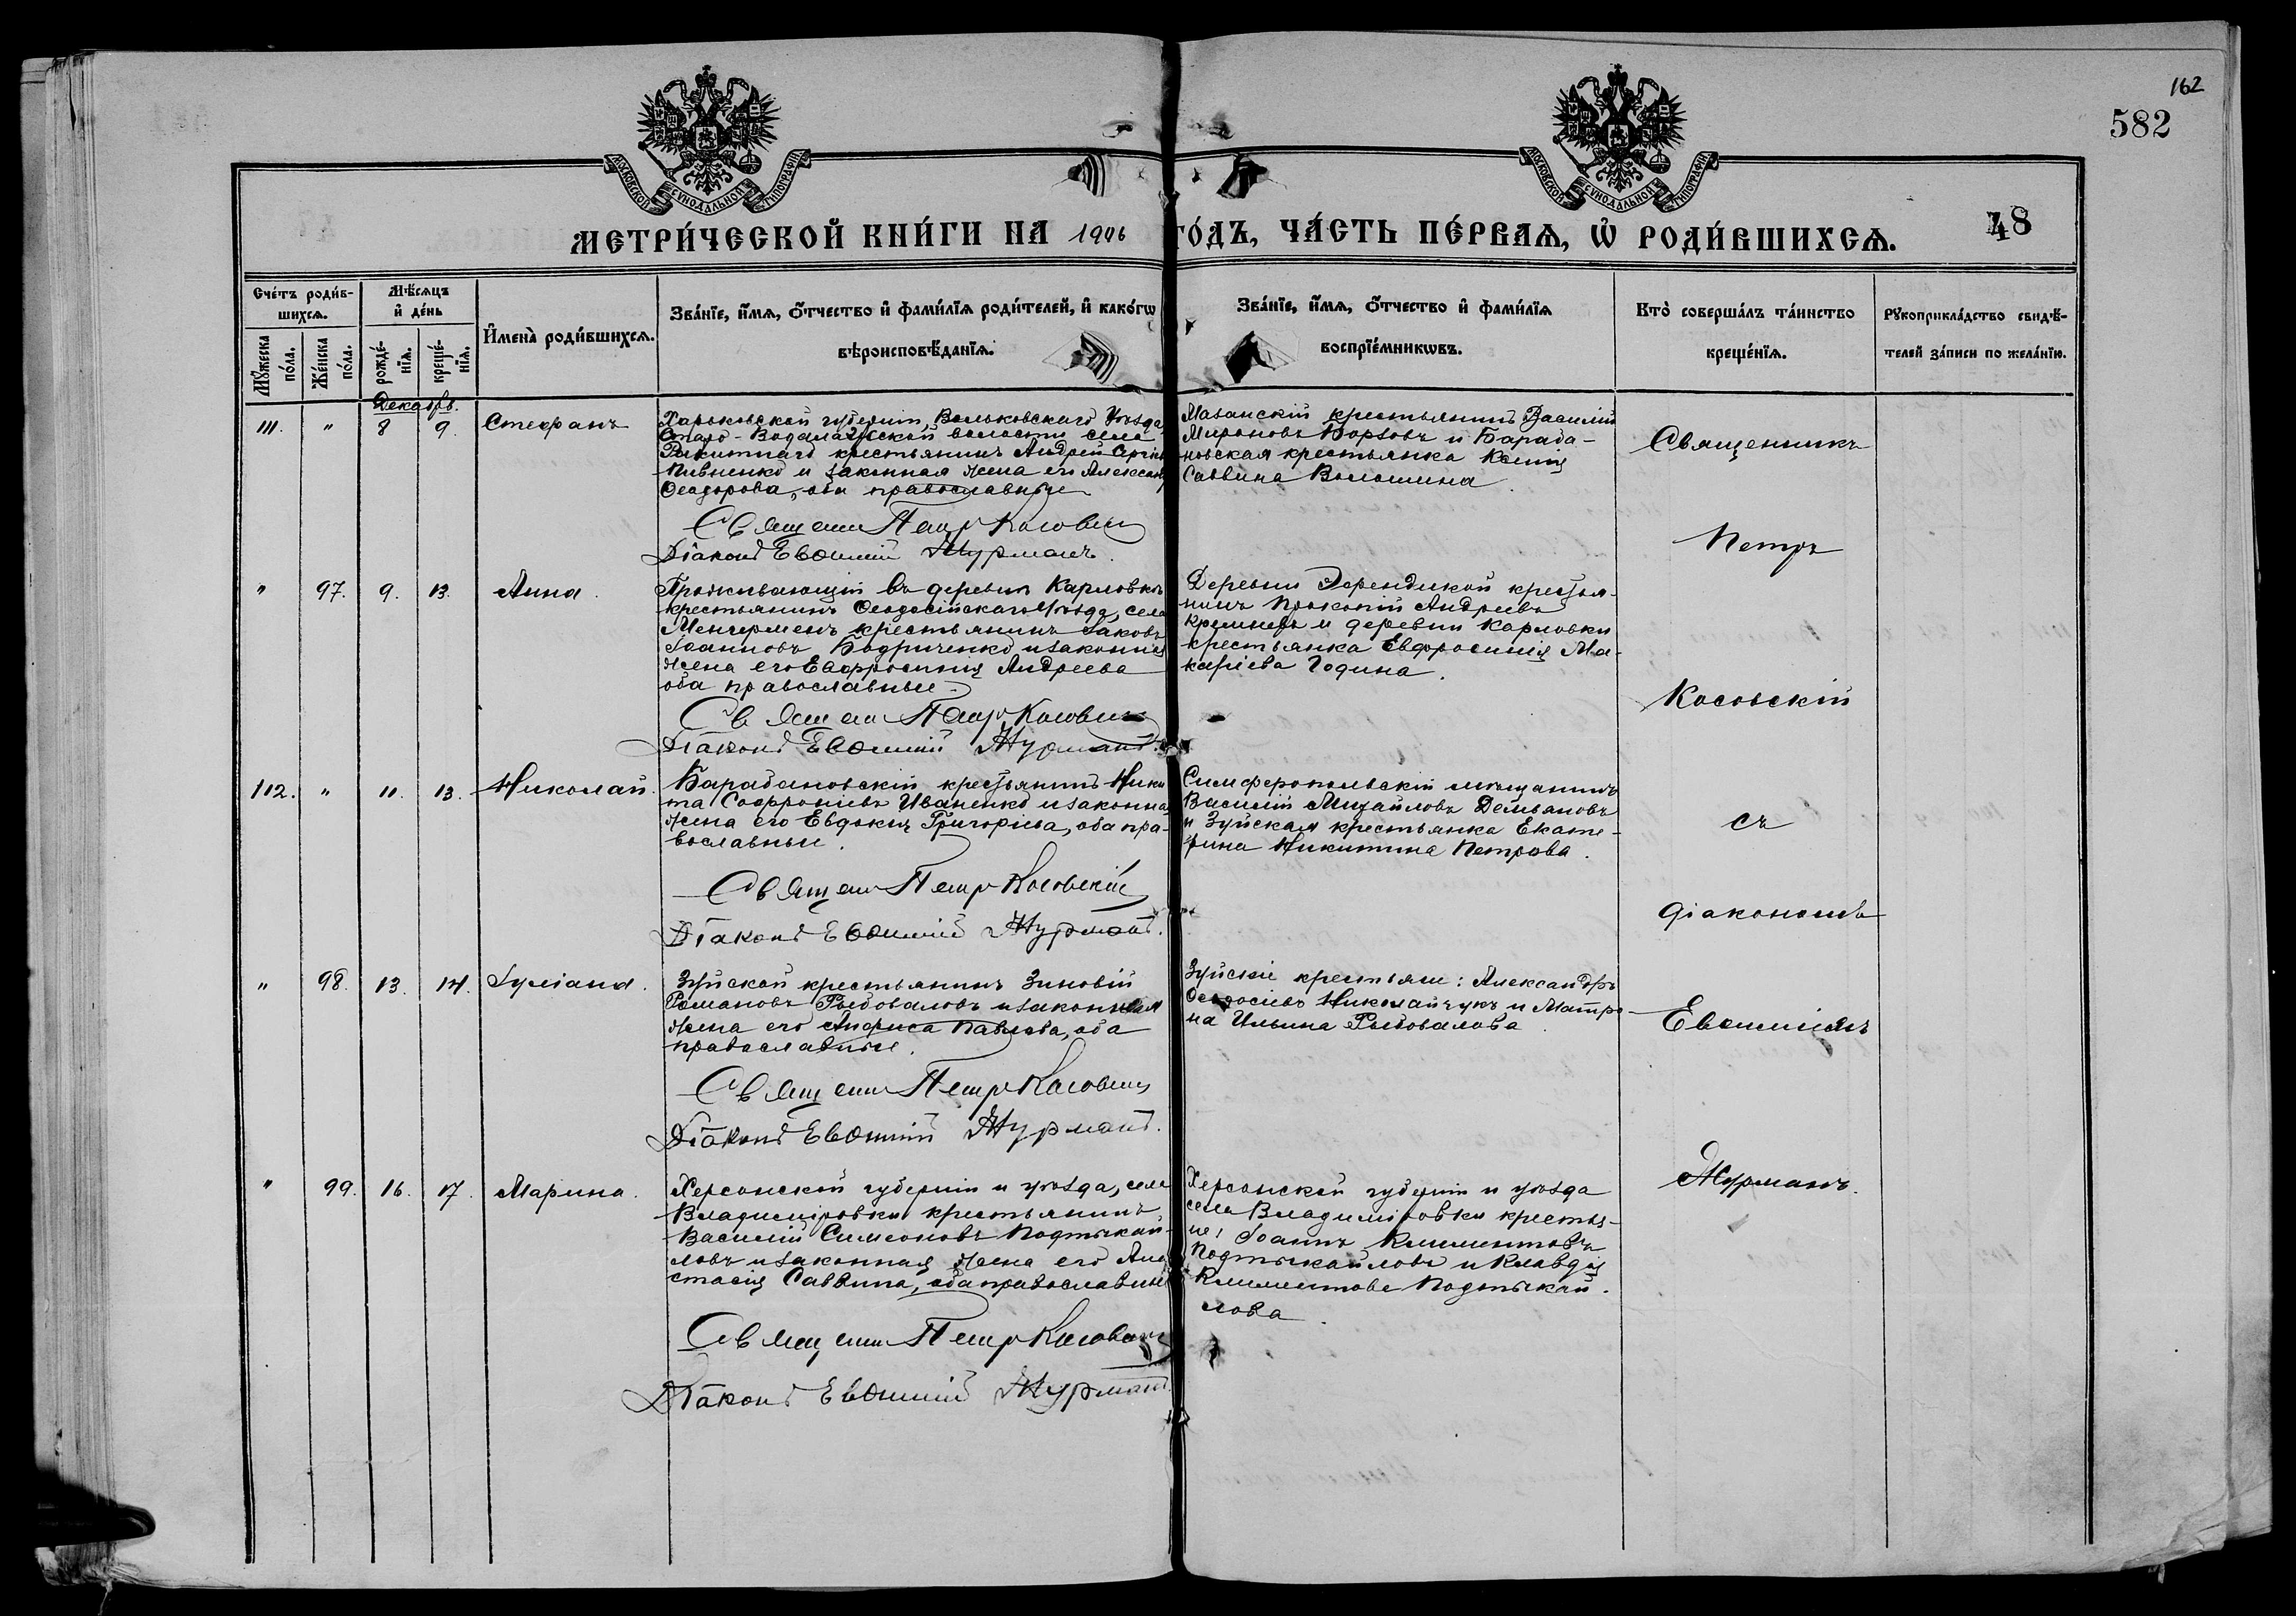 162
582
МОСКОВСКОЙ СѴНОДАЛЬНОЙ ТИПОГРАФІИ
МОСКОВСКОЙ СѴНОДАЛЬНОЙ ТИПОГРАФІИ
МЕТРИ́ЧЕСКОЙ КНИ́ГИ НА 1906 ГО́ДЪ, ЧА́СТЬ ПЕ́РВАѦ, Ѡ҆ РОДИ́ВШИХСѦ.
48
Сче́тъ роди́в-
шихсѧ.
Мѣ́сѧцъ
и҆ де́нь
Мꙋ́жеска
по́ла.
Же́нска
по́ла.
рожде́-
нїѧ.
креще́-
нїѧ.
И҆мена̀ роди́вшихсѧ.
Зва́нїе, и҆́мѧ, ѻ҆́тчество и҆ фами́лїѧ роди́телей, и҆ како́гѡ
вѣроисповѣ́данїѧ.
Зва́нїе, и҆́мѧ, ѻ҆́тчество и҆ фами́лїѧ
воспрїе́мникѡвъ.
Кто̀ соверша́лъ та́инство
креще́нїѧ.
Рꙋкоприкла́дство свидѣ́-
телей за́писи по жела́нїю.
Декабрь.
111. " 8 9. Стефанъ
Харьковской губерніи, Вальковскаго уѣзда,
Старо-Водалажской волости села
Ракитнаго крестьянинъ Андрей Сергіевъ
Пивненко и законная жена его Александра
Ѳеодорова, оба православные
Священ Петръ Косовскій
Діаконъ Евѳимій Журманъ.
Мазанскій крестьянинъ Василій
Мироновъ Борзовъ и Бараба-
новская крестьянка Ксенія
Саввина Волошина.
" 97. 9. 13. Анна.
Проживающій въ деревнѣ Карловкѣ
крестьянинъ Ѳеодосійскаго уѣзда, села
Менгерменъ крестьянинъ Іаковъ
Іоанновъ Бодриченко и законная
жена его Евфросинія Андреева
оба православные.
Священ Петръ Косовскій
Діаконъ Евѳимій Журманъ.
Деревни Эфендикой крестья-
нинъ Прокопій Андреевъ
Кремневъ и деревни Карловки
крестьянка Евфросинія Ма-
каріева Година.
112. " 11. 13. Николай.
Барабановскій крестьянинъ Ники
та Софроніевъ Иваненко и законная
жена его Евдокія Григоріева, оба пра-
вославные.
Священ Петръ Косовскій
Діаконъ Евѳимій Журманъ.
Симферопольскій мѣщанинъ
Василій Михайловъ Демьяновъ
и Зуйская крестьянка Екате-
рина Никитина Петрова.
" 98. 13. 14. Іуліана.
Зуйской крестьянинъ Зиновій
Романовъ Рыбоваловъ и законная
жена его Анфиса Павлова, оба
православные.
Священ Петръ Косовскій
Діаконъ Евѳимій Журманъ.
Зуйскіе крестьяне: Александръ
Ѳеодосіевъ Николайчукъ и Матро-
на Ильина Рыбовалова.
" 99. 16. 17. Марина.
Херсонской губерніи и уѣзда, села
Владиміровки крестьянинъ
Василій Симеоновъ Подтыкай-
ловъ и законная жена его Ана
стасія Саввина, оба православные
Священ Петръ Косовскій
Діаконъ Евѳимій Журманъ.
Херсонской губерніи и уѣзда
села Владиміровки крестья-
не: Іоаннъ Климентовъ
Подтыкайловъ и Клавдія
Климентова Подтыкай-
лова.
Священникъ
Петръ
Косовскій
съ
діакономъ
Евѳиміемъ
Журманъ.